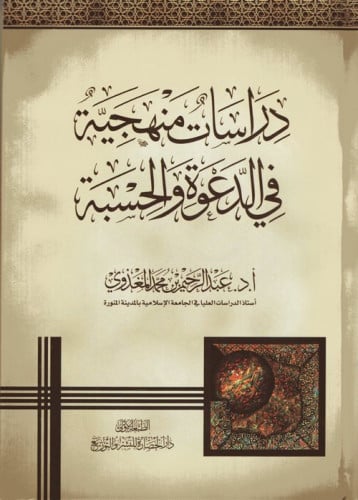 دِرَاسَاتٌ مَنْهَجِيَّة
فِي الدَّعْوَةِ وَالحِسْبَة
أ.د. عَبْدُ الرَّحِيمِ بْن مُحَمَّد المَغْذَوِي
أستاذ الدراسات العليا في الجامعة الإسلامية بالمدينة المنورة
دار الحضارة للنشر والتوزيع